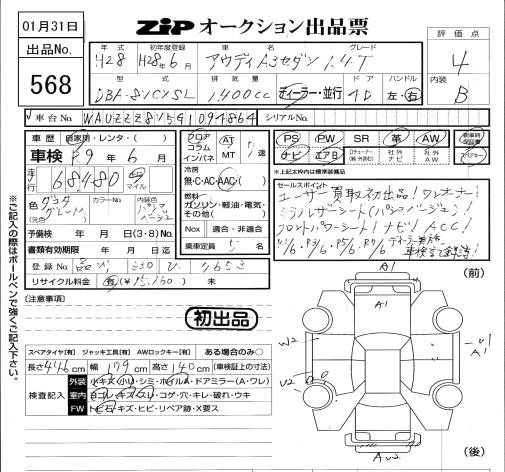 01月31日
出品No.
568
ZIPオークション出品票
評価点
4
内装
B
年式 初年度登録 車名 グレード
H28 H28年6月 アウディA3セダン 1.4T
型式 排気量 ディーラー・並行 ドア ハンドル
1400cc 4D 左・右
車台No. WAUZZZ8V5G1094864 シリアルNo.
車歴 自家用・レンタ・( )
車検 R9年6月
走行 68480 km マイル
色 (元色) カラーNo. 内装色
予備検 年 月 日(3・8)No.
書類有効期限 年 月 日
登録No. 品川 330 ひ
リサイクル料金 有(¥15,160) 未
フロア コラム インパネ
AT MT 7速
冷房
無・C・AC・AAC
燃料
ガソリン・軽油・電気・その他( )
Nox 適合・非適合
乗車定員 5名
PS PW SR 革 AW
ナビ エアB 社外ナビ 社外AW
*上記太枠内は標準装備品
セールスポイント
ユーザー買取初出品!ワンオーナー!
ミラノレザーシート(パシャベージュ)
フロントパワーシート!ナビ!ACC!
(注意事項)
初出品
(前)
A1
A1
W2
U1
A1
U2
(後)
スペアタイヤ[有] ジャッキ工具[有] AWロックキー[有] ある場合のみ○
長さ446cm 幅179cm 高さ140cm (車検証上の寸法)
検査記入
外装 小キズ・小U・シミ・ホイルA・ドアミラー(A・ワレ)
室内 ヨゴレ・キズ・スレ・コゲ・穴・キレ・破れ・ウキ
FW トビ石・キズ・ヒビ・リペア跡・X要ス
ご記入の際はボールペンで強くご記入下さい。